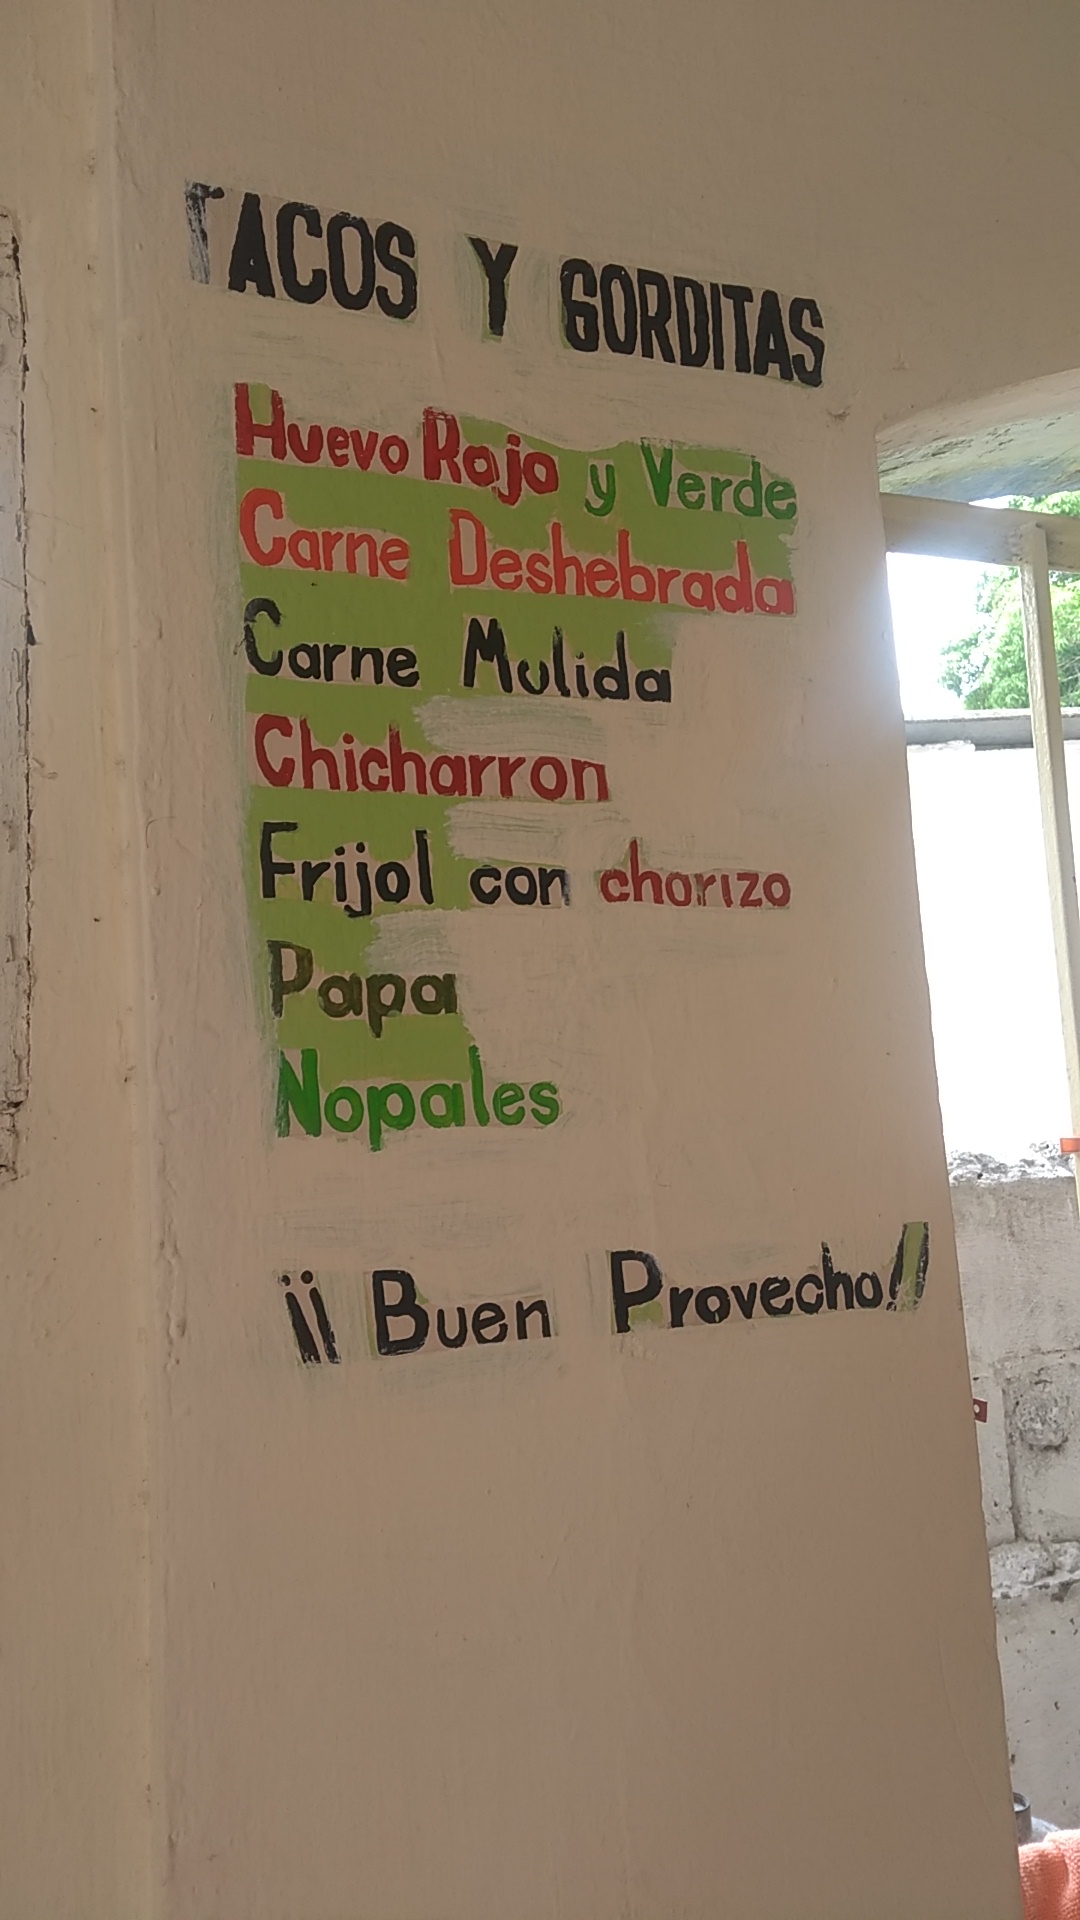 TACOS Y GORDITAS
Huevo Rojo y Verde
Carne Deshebrada
Carne Molida
Chicharron
Frijol con chorizo
Papa
Nopales
¡¡ Buen Provecho!!